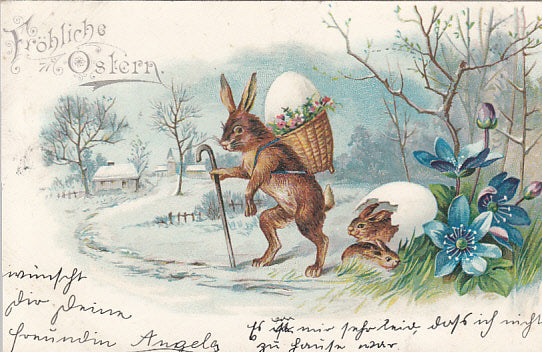 Fröhliche
Ostern.
wünscht
Dir Deine
Freundin Angela
Es ist mir sehr leid, dass ich nicht
zu hause war.